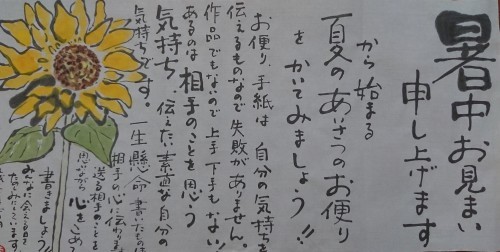 暑中お見まい
申し上げます
から始まる
夏のあいさつのお便り
をかいてみましょう!!
お便り、手紙は自分の気持ちを
伝えるものなので失敗がありません。
作品でもないので上手下手もない!
あるのは相手のことを思う
気持ち 伝えたい素直な自分の
気持ちです。一生懸命書いたものは
相手の心に伝わります
送る相手のことを
思いながら心をこめて
書きましょう!!
みんなに会える日を
たのしみにしています!